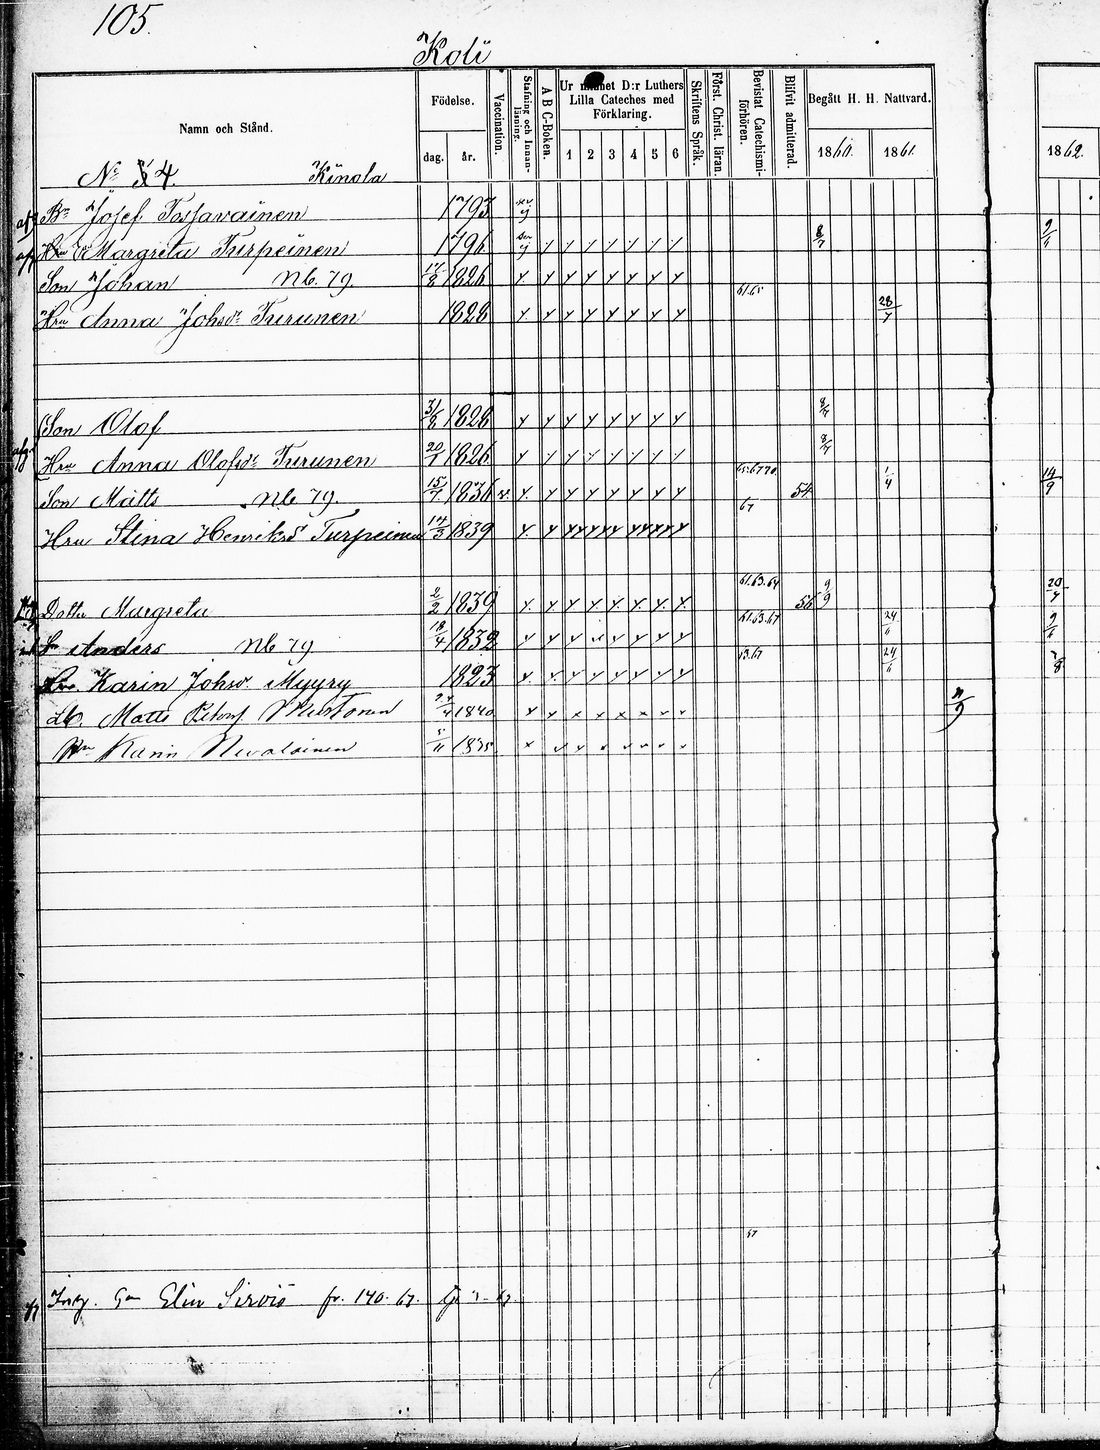 105.
Koli
Namn och Stånd.
Födelse.
dag. år.
Vaccination.
Stafning och Innanläsning.
A B C-Boken.
Ur minnet D:r Luthers Lilla Cateches med Förklaring.
1 2 3 4 5 6
Skriftens Språk.
Först. Christ. läran.
Bevistat Catechismiförhören.
Blifvit admitterad.
Begått H. H. Nattvard.
1860. 1861. 1862.
No 4. Kinola
Bn Josef Tossavainen 1793
Margreta Turpeinen 1796 8/7
Son Johan Nb. 79. 17/8 1826 61.65
Hru Anna Johsdr Turunen 1828 28/7
Son Olof 31/8 1826 8/7
Hru Anna Olofsdr Turunen 20/7 1826 8/7
Son Matts Nb 79. 15/7 1836 v. 54 1/4 14/9
Hru Stina Henriksdr Turpeinen 14/3 1839 67
Dottr Margreta 2/2 1839 61.63.64 56 9/9 20/4
Sn Anders Nb 79 18/4 1832 61.63.67 24/6
Karin Johsdr Myyry 1823 24/6
Matts 1840
Karin Nevalainen 5/11 1835
67
Elin Sirviö fr. 140. 67.